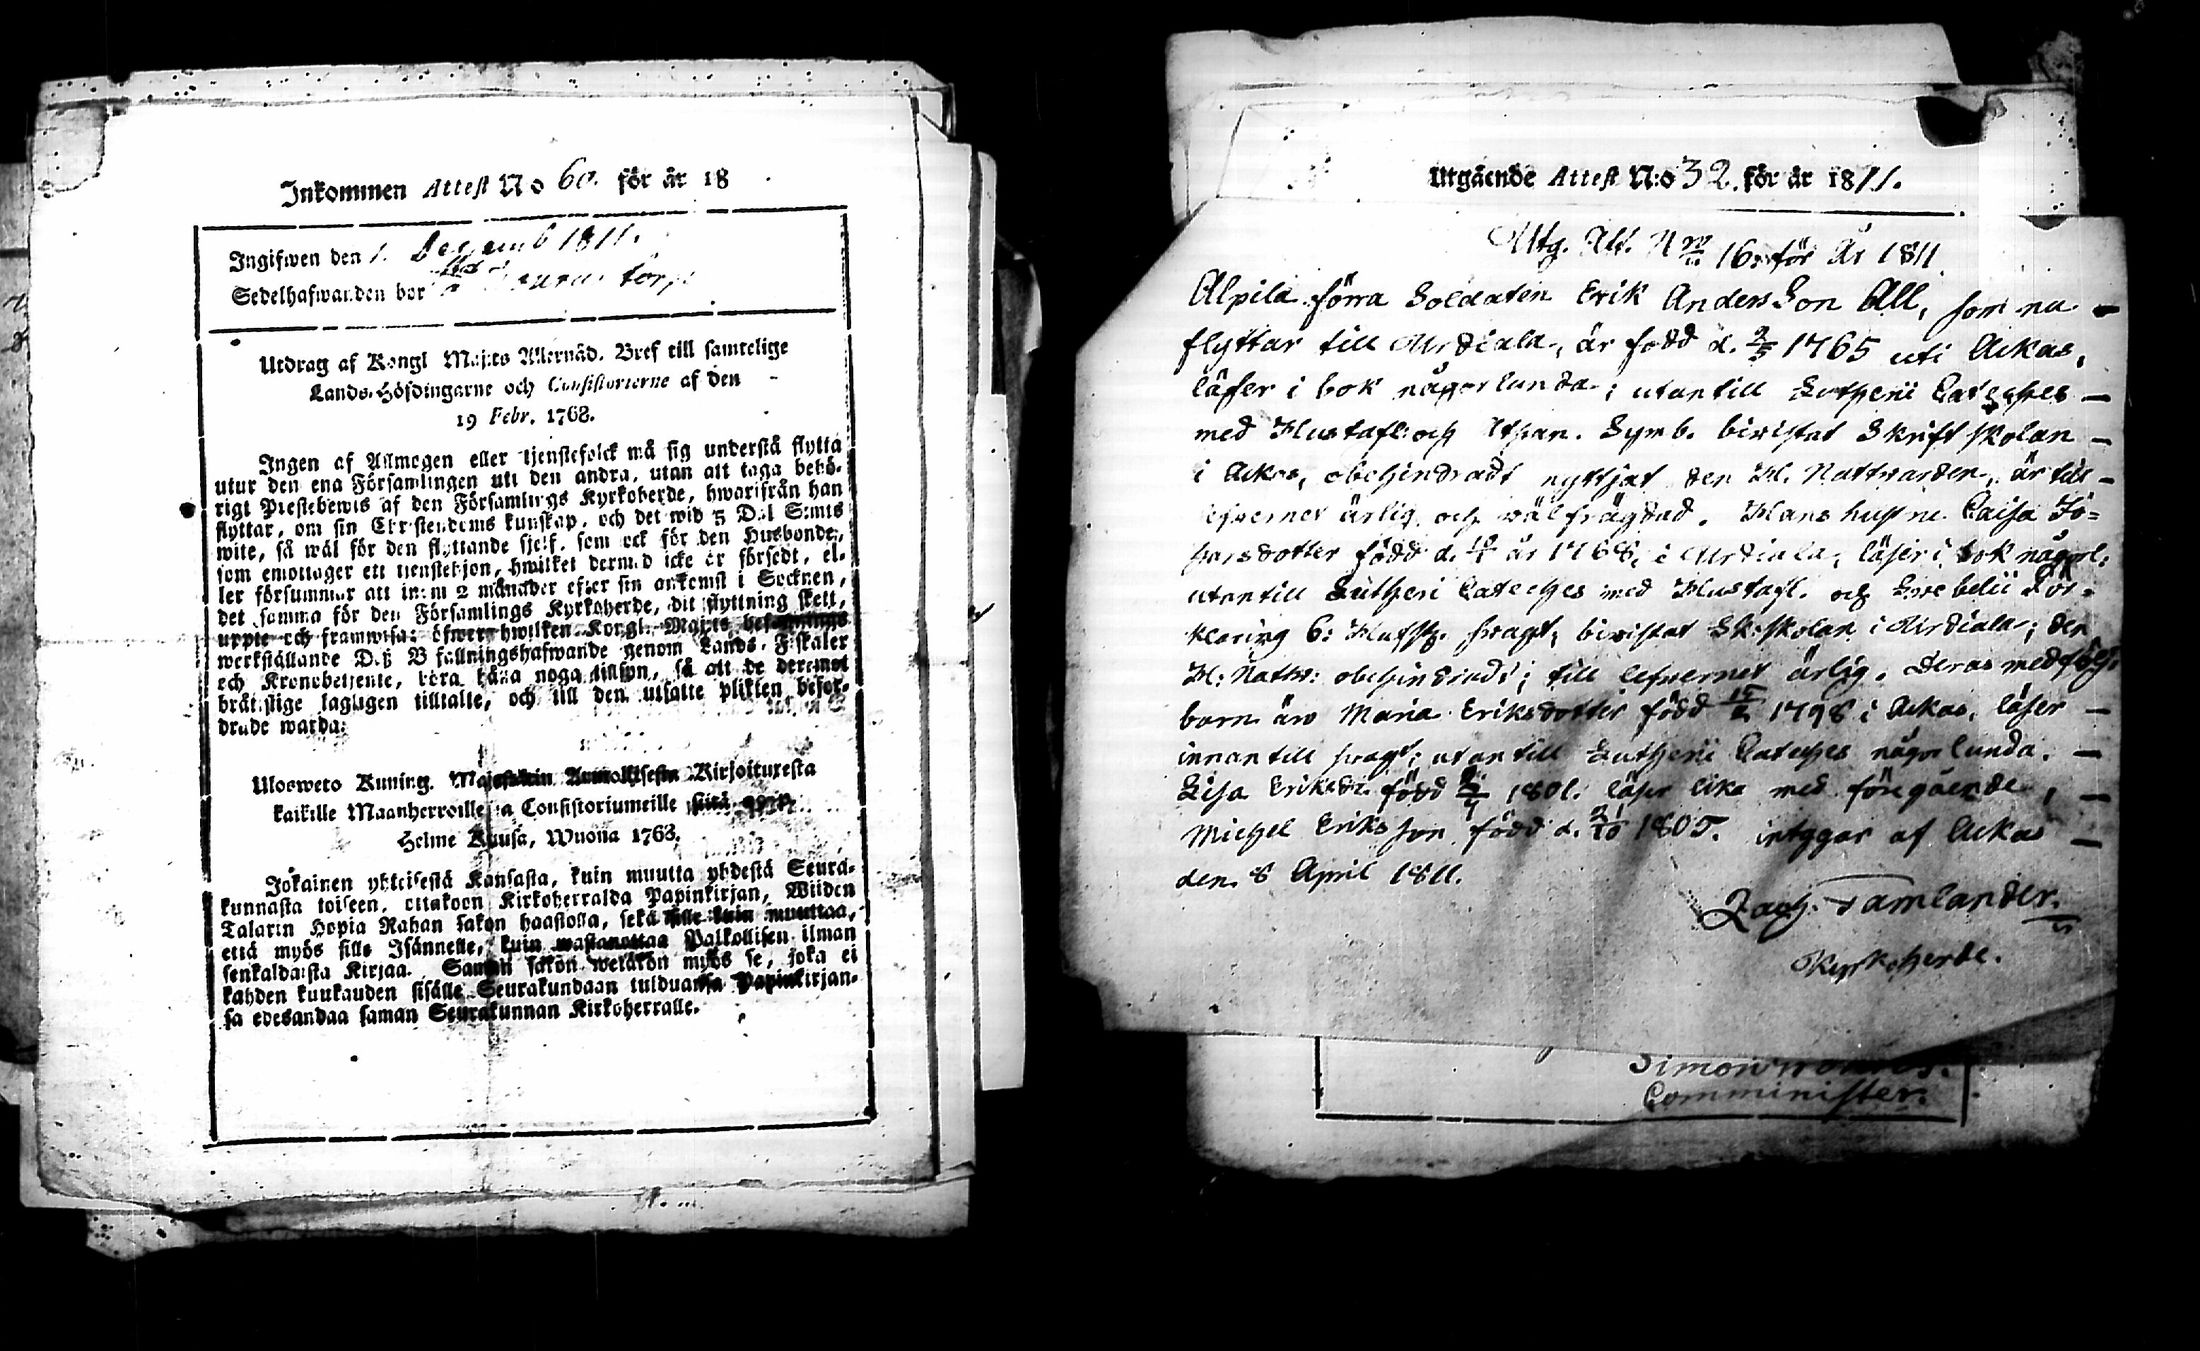 Inkommen Attest No 60. för år 18
Ingifwen den 1. Decemb 1811.
Sedelhafwanden bor torp
Utdrag af Kongl Maj:ts Allernåd. Bref till samtelige
Lands-Höfdingarne och Consistorierne af den
19 Febr. 1768.
Ingen af Allmogen eller tjenstefolck må sig understå flytta
utur den ena Församlingen uti den andra, utan att taga behö-
rigt Prestebewis af den Församlings Kyrkoherde, hwarifrån han
flyttar, om sin Christendoms kunskap, och det wid 5 Dal S:mts
wite, så wäl för den flyttande sjelf, som ock för den Husbonde,
som emottager ett tjenstehjon, hwilket dermed icke är försedt, el-
ler försummar att inom 2 månader efter sin ankomst i Socknen,
det samma för den Församlings Kyrkoherde, dit flyttning skett,
uppte och framwisa: öfwer hwilken Kongl. Maj:ts befallnings
werkställande Deß Befallningshafwande genom Lands-Fiskaler
och Kronobetjente, böra hålla noga tillsyn, så att de deremot
bråtslige lagligen tilltalte, och till den utsatte plikten befor-
drade warda:
Ulosweto Kuning. Majestetin Armollisesta Kirjoituxesta
kaikille Maanherroille ja Consistoriumeille siitä 19:ta
Helme Kuusa, Wuonna 1768.
Jokainen yhteisestä Kansasta, kuin muutta yhdestä Seura-
kunnasta toiseen, ottakoon Kirkoherralda Papinkirjan, Wiiden
Talarin Hopia Rahan sakon haastolla, sekä sille kuin muuttaa,
että myös sille Isännelle, kuin wastanottaa Palkollisen ilman
senkaldaista Kirjaa. Saman sakon wetäkön myös se, joka ei
kahden kuukauden sisälle Seurakundaan tulduansa Papinkirjan-
sa edesandaa saman Seurakunnan Kirkoherralle.
Utgående Attest N:o 32. för år 1811.
Utg. Att. Nro 16. för År 1811
Alpila förra Soldaten Erik Andersson All, som nu
flyttar till Urdiala, är född d. 2/5 1765 uti Ackas,
läser i bok någorlunda; utantill Lutherii Cateches
med Hustafl: och Athan. Symb. bivistat Skriftskolan
i Ackas, obehindradt nyttjat den H. Nattvarden, är till
lefvernet ärlig och välfrägdad. Hans hustru Caisa Jo-
hansdotter född d. år 1766, i Urdiala, läser i bok någorl:
utantill Lutheri Cateches med Hustafl. och Svebelii För-
klaring 6: Hufst. svagt; bivistat Sk:skolan i Urdiala; den
H: Nattv: obehindradt; till lefvernet ärlig. Deras medfölj:
barn äro Maria Eriksdotter född 1798 i Ackas, läser
innantill svagt; utantill Lutherii Cateches någorlunda.
Lisa Eriksdr. född 1801. läser lika med föregående,
Michel Eriksson född d. 21/10 1805. intygar af Ackas
den 8 April 1811.
Zach. Tamlander.
Kyrkoherde.
Simon
Comminister.